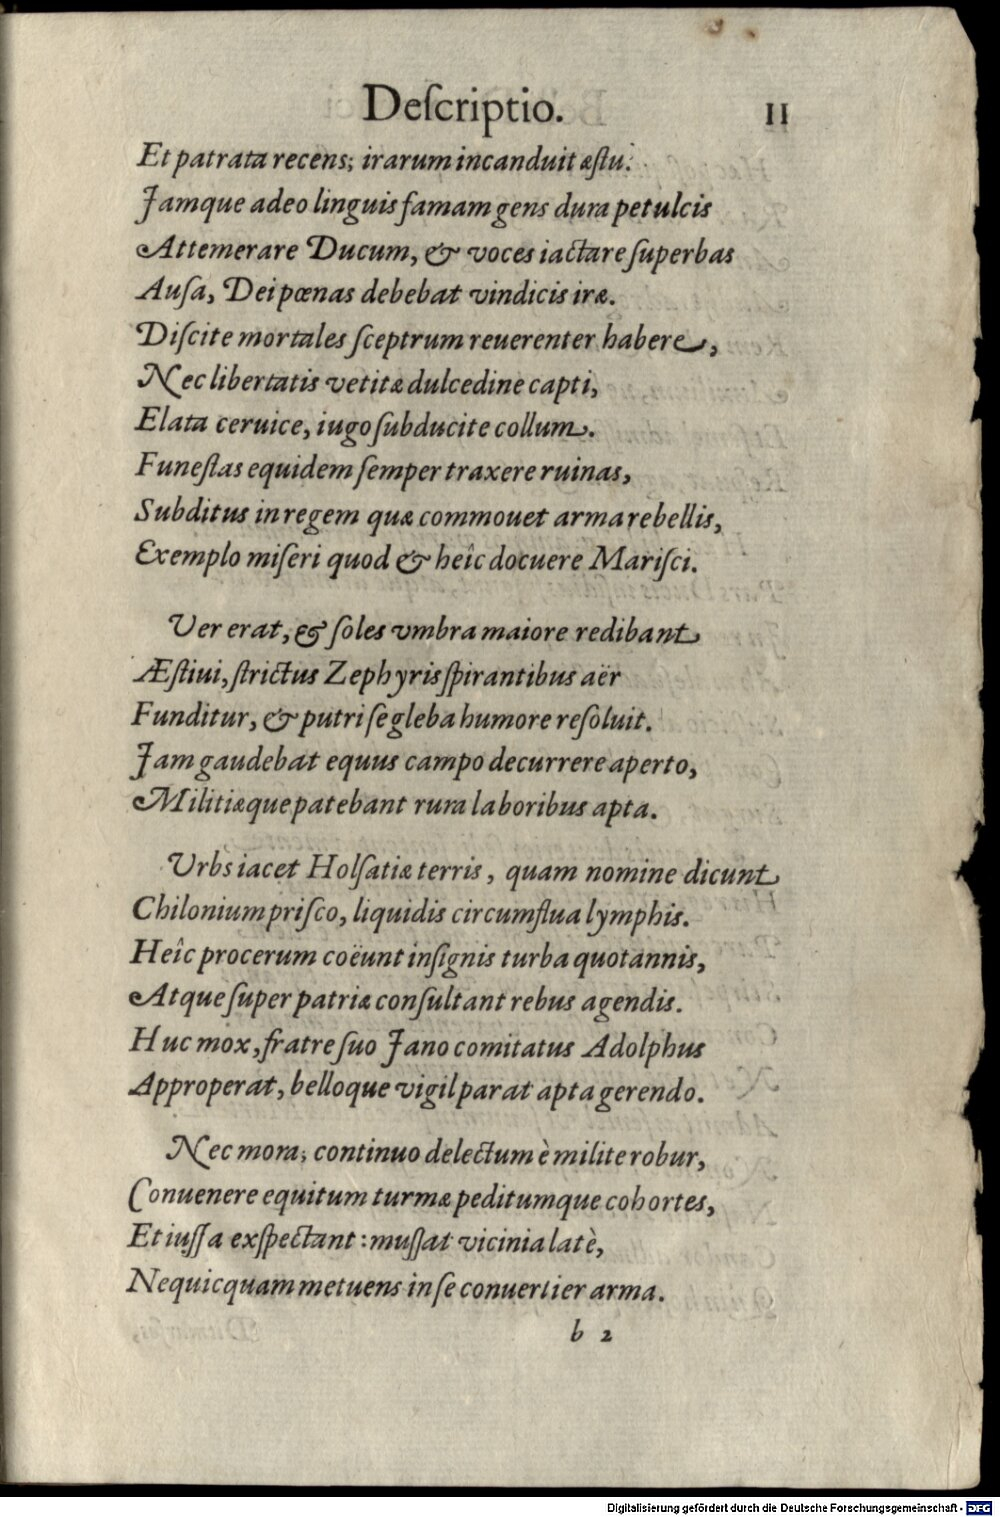 Deſcriptio. 11
Et patrata recens; irarum incanduit æſtu.
Jamque adeo linguis famam gens dura petulcis
Attemerare Ducum, & voces iactare ſuperbas
Auſa, Dei pœnas debebat vindicis iræ.
Diſcite mortales ſceptrum reuerenter habere,
Nec libertatis vetitæ dulcedine capti,
Elata ceruice, iugo ſubducite collum.
Funeſtas equidem ſemper traxere ruinas,
Subditus in regem quæ commouet arma rebellis,
Exemplo miſeri quod & heîc docuere Mariſci.
Ver erat, & ſoles vmbra maiore redibant
Æſtiui, ſtrictus Zephyris ſpirantibus aër
Funditur, & putri ſe gleba humore reſoluit.
Jam gaudebat equus campo decurrere aperto,
Militiæque patebant rura laboribus apta.
Vrbs iacet Holſatiæ terris, quam nomine dicunt
Chilonium priſco, liquidis circumflua lymphis.
Heîc procerum coëunt inſignis turba quotannis,
Atque ſuper patriæ conſultant rebus agendis.
Huc mox, fratre ſuo Jano comitatus Adolphus
Approperat, belloque vigil parat apta gerendo.
Nec mora; continuo delectum è milite robur,
Conuenere equitum turmæ peditumque cohortes,
Et iuſſa exſpectant: muſſat vicinia latè,
Nequicquam metuens in ſe conuertier arma.
b 2
Digitalisierung gefördert durch die Deutsche Forschungsgemeinschaft - DFG